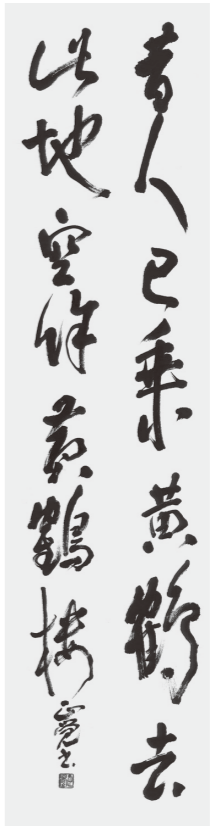 昔人已乘黄鶴去
此地空餘黄鶴楼